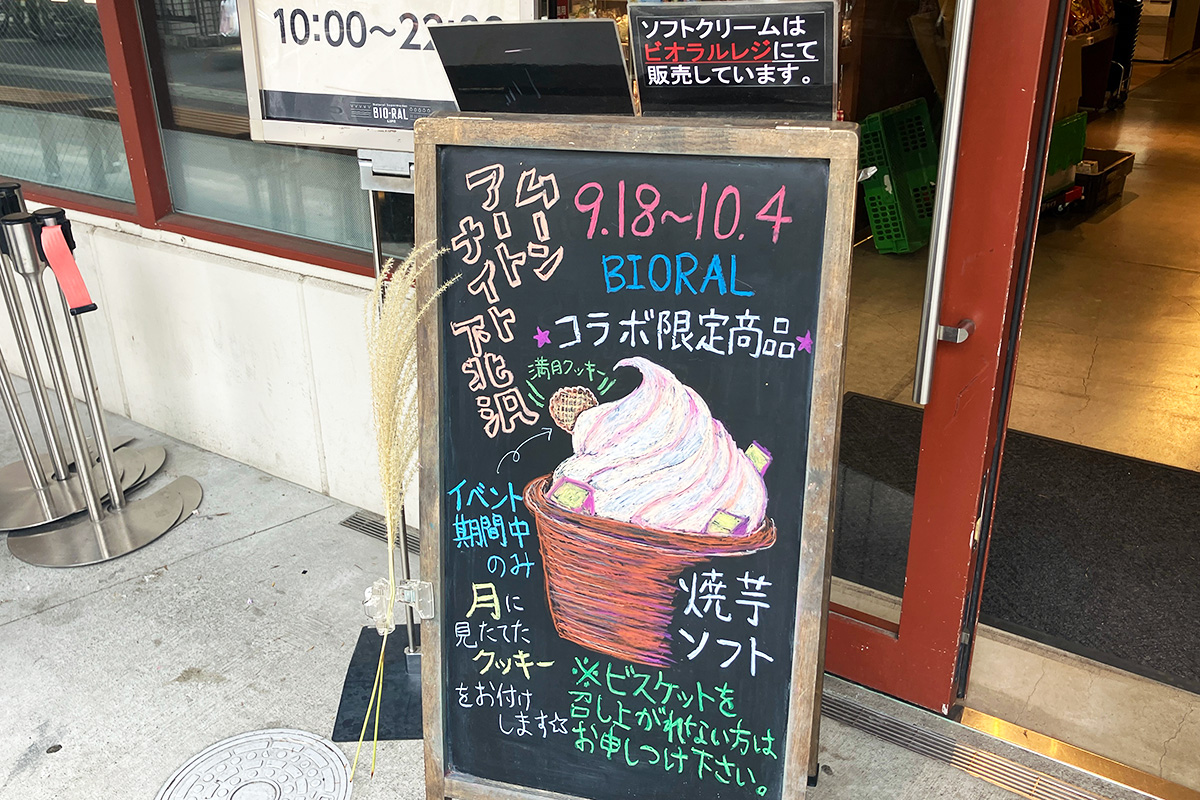 10:00〜22:00
BIO-RAL
ソフトクリームは
ビオラルレジにて
販売しています。
ムーン
アートナイト下北沢
9.18〜10.4
BIORAL
★コラボ限定商品★
満月クッキー
イベント
期間中
のみ
月に
見たてた
クッキー
をお付け
します☆
焼芋
ソフト
※ビスケットを
召し上がれない方は
お申しつけ下さい。